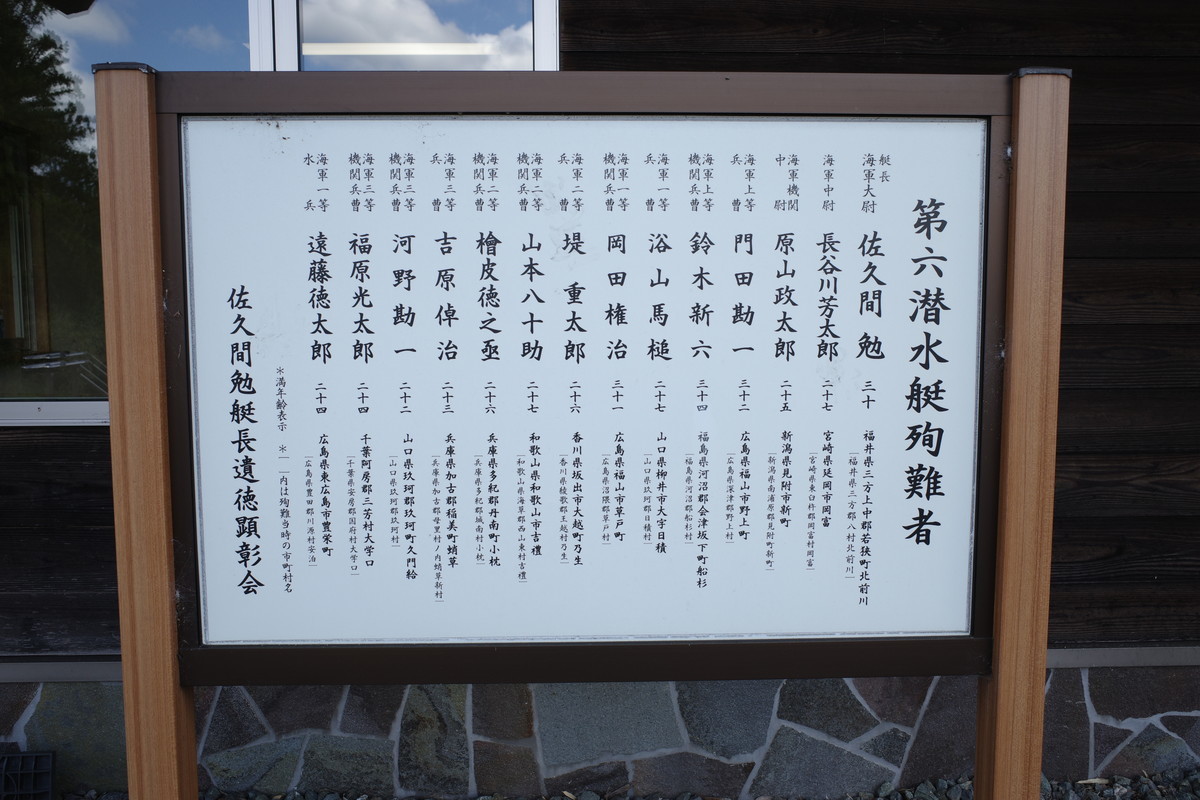 第六潜水艇殉難者
艇長 海軍大尉 佐久間 勉 三十 福井県三方上中郡若狭町北前川 ［福井県三方郡八村北前川］
海軍中尉 長谷川芳太郎 二十七 宮崎県延岡市岡富 ［宮崎県東臼杵郡岡富村岡富］
海軍機関中尉 原山政太郎 二十五 新潟県見附市新町 ［新潟県南蒲原郡見附町新町］
海軍上等兵曹 門田勘一 三十二 広島県福山市野上町 ［広島県深津郡野上村］
海軍上等機関兵曹 鈴木新六 三十四 福島県河沼郡会津坂下町船杉 ［福島県河沼郡船杉村］
海軍一等兵曹 浴山馬槌 二十七 山口県柳井市大字日積 ［山口県玖珂郡日積村］
海軍一等機関兵曹 岡田権治 三十一 広島県福山市草戸町 ［広島県沼隈郡草戸村］
海軍二等兵曹 堤 重太郎 二十六 香川県坂出市大越町乃生 ［香川県綾歌郡王越村乃生］
海軍二等機関兵曹 山本八十助 二十七 和歌山県和歌山市吉禮 ［和歌山県海草郡西山東村吉禮］
海軍二等機関兵曹 檜皮徳之亟 二十六 兵庫県多紀郡丹南町小枕 ［兵庫県多紀郡城南村小枕］
海軍三等兵曹 吉原倬治 二十三 兵庫県加古郡稲美町蛸草 ［兵庫県加古郡母里村ノ内蛸草新村］
海軍三等機関兵曹 河野勘一 二十二 山口県玖珂郡玖珂町久門給 ［山口県玖珂郡玖珂村］
海軍三等機関兵曹 福原光太郎 二十四 千葉阿房郡三芳村大学口 ［千葉県安房郡国府村大学口］
海軍一等水兵 遠藤徳太郎 二十四 広島県東広島市豊栄町 ［広島県豊田郡川源村安泊］
＊満年齢表示 ＊［ ］内は殉難当時の市町村名
佐久間勉艇長遺徳顕彰会